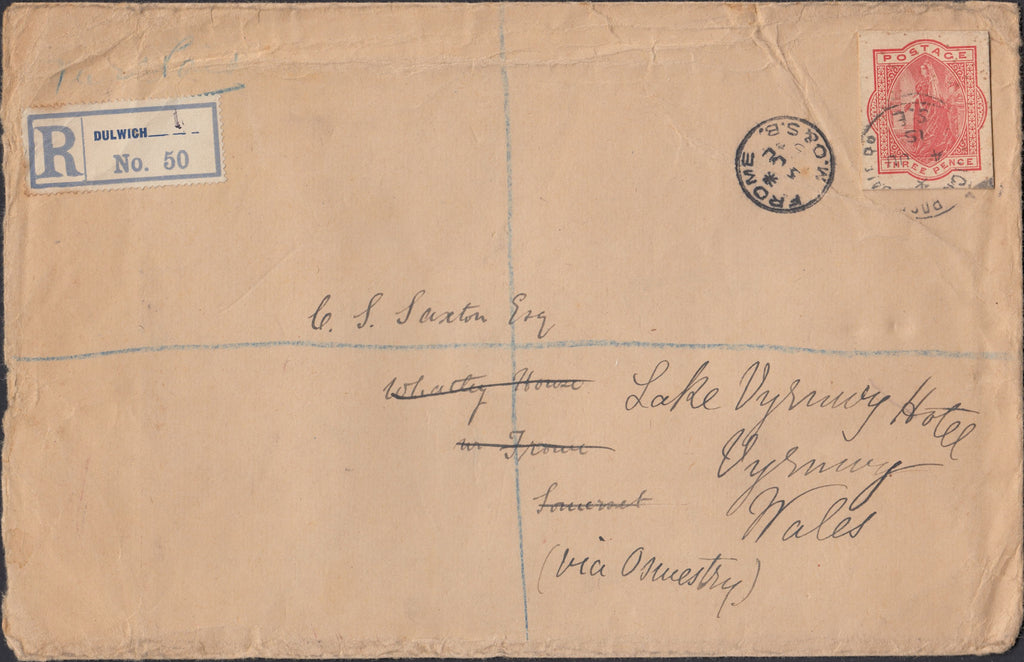 R DULWICH
No. 50
POSTAGE
THREE PENCE
FROME
M.O. & S.B.
C. S. Saxton Esq
Whatley House
nr Frome
Somerset
Lake Vyrnwy Hotel
Vyrnwy
Wales
(via Oswestry)